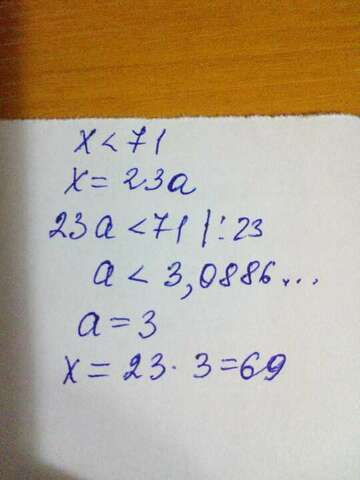 x < 71
x = 23a
23a < 71 | : 23
a < 3,0886...
a = 3
x = 23 · 3 = 69